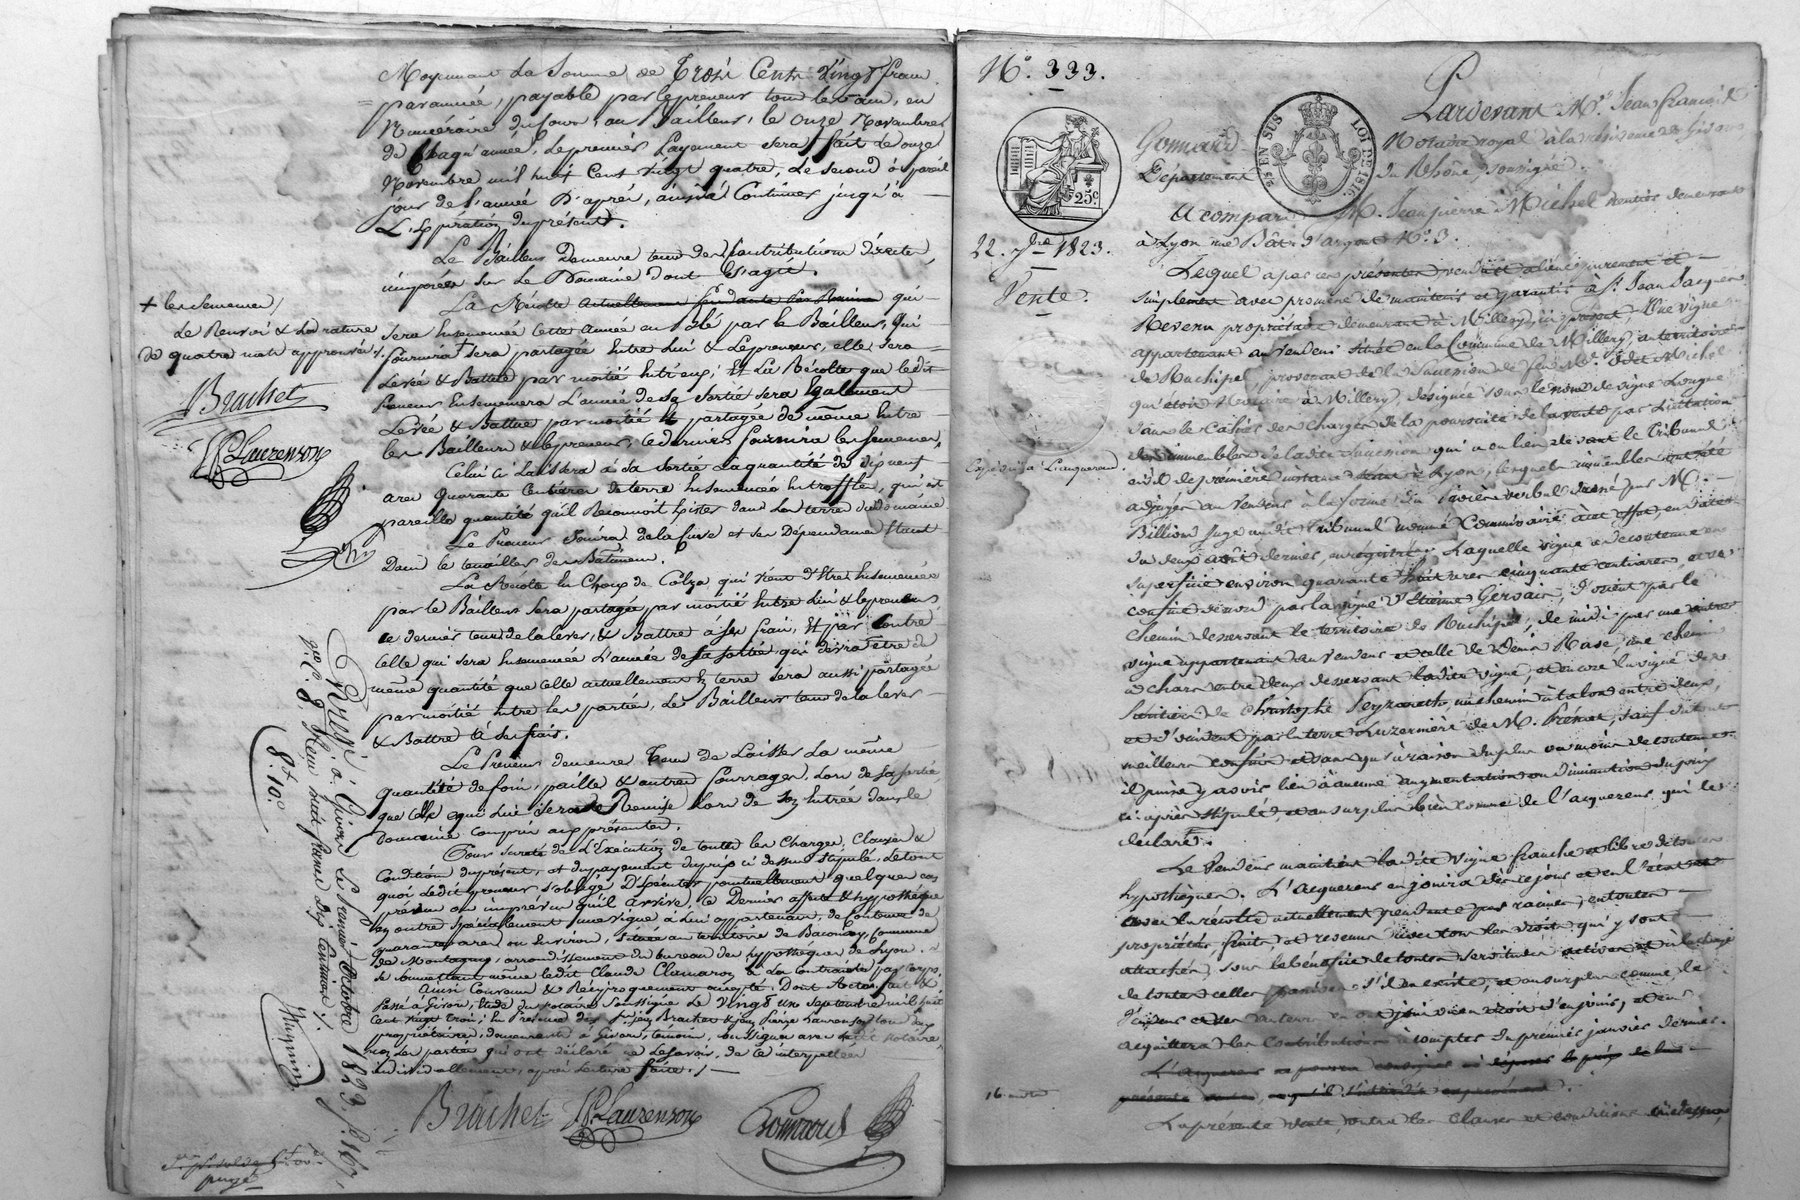 Moyennant la Somme de Trois Cent Vingt francs
par année, payable par le preneur tous les ans, en
Numéraire du Cours, au Bailleur, le onze Novembre
de Chaqu'année, le premier Payement sera fait le onze
Novembre mil huit Cent vingt quatre, le second à pareil
jour de l'année D'après, ainsi Continuer jusqu'à
L'Expiration du présent.
Le Bailleur Demeure tenu des Contributions directes,
imposées sur le Domaine dont S'agit.
La Récolte actuellement pendante par Racines qui
sera Ensemencée Cette année en Blé par le Bailleur, qui
fournira + sera partagée Entre Lui & Le preneur, elle sera
Levée & Battue par moitié Entr'eux; Et La Récolte que ledit
Preneur Ensemencera L'année de sa Sortie sera Egalement
Levée & Battue par moitié & partagée de même Entre
les Bailleur & le preneur, Ce dernier fournira les semences,
Celui ci Laissera à sa sortie la quantité de dix neuf
ares quarante Centiares de terre Ensemencés En treffle, qui est
pareille quantité qu'il Reconnoit Exister dans les terres du Domaine
Le Preneur Jouira de la Cure et ses Dépendances Etant
Dans le tenailler des Bâtimens.
La Récolte En Choux de Colza qui vient d'Etre Ensemencée
par le Bailleur sera partagée par moitié Entre Lui & le preneur
Ce dernier tenu de la lever, & Battre à ses frais, Et par Contre
Celle qui sera Ensemencée L'année de sa sortie qui devra être de
même quantité que Celle actuellement En terre sera aussi partagée
par moitié Entre les parties, Le Bailleur tenu de la lever
& Battre à ses frais.
Le Preneur demeure Tenu de Laisser La même
quantité de foin, paille & autres Fourrages, Lors de sa sortie
que Celle qui lui sera Remise Lors de son Entrée dans le
Domaine Compris aux présentes.
Pour sureté de L'Exécution de toutes les Charges, Clauses &
Conditions du présent, et du payement du prix ci dessus stipulé, le tout
quoi ledit preneur s'oblige D'Exécuter ponctuellement quelque cas
prévu ou imprévu qu'il arrive, Ce Dernier affecte & hypothèque
en outre spécialement une vigne à Lui appartenant, de Contenue de
quarante ares ou Environ, située au territoire de Commune
de Montagny, arrondissement du bureau des hypothèques de Lyon.
se soumettant même ledit Claude à La Contrainte par Corps.
Ainsi Convenu & Réciproquement accepté, Dont Acte, fait &
Passé à Givors, Etude du notaire Soussigné Le Vingt un Septembre mil huit
Cent vingt trois; En Présence des Srs Jean Brachet & Jean Pierre Laurenson tous deux
propriétaires, demeurants à Givors, témoins, Soussignés avec ledit notaire,
non les parties qui ont déclaré ne Le savoir, de ce interpellées
individuellement, après lecture faite. /.
Brachet JP Laurenson Gonnard
+ les semences /
Le Renvoi & La rature
de quatre mots approuvés /.
Brachet
JP Laurenson
Enregé à Givors Le premier Octobre 1823. fo 167,
Ro Co 8. Reçu huit francs dix Centimes /.
8f 10c
No. 333.
25 EN SUS
LOI DE 1816.
25c
22. 7bre 1823.
Vente.
Pardevant Me. Jean François
Gonnard Notaire royal à la résidence de Givors
Département du Rhône, soussigné.
A comparu M. Jean pierre Michel rentier demeurant
à Lyon rue Bât-d'argent No. 3.
Lequel a par ces présentes vendu et aliéné purement et
simplement avec promesse de maintenir et garantir à Sr. Jean Jacques
Revenu propriétaire demeurant à Millery, ici présent Une vigne
appartenant au vendeur située en la Commune de Millery, au territoire
de Ruchipel, provenant de la Succession de feu Me. Michel
qui étoit Notaire à Millery, désignée sous le nom de vigne Longue
dans le Cahier des Charges de la poursuite de la vente par licitation
des immeubles de ladite Succession qui a eu lieu devant le Tribunal
civil de première instance séant à Lyon, lesquels immeubles ont été
adjugés au vendeur à la forme du procès verbal dressé par M.
Billion Juge audit Tribunal nommé Commissaire à cet effet, en date
du deux août dernier, enregistré. Laquelle vigne a de contenue en
superficie environ quarante huit ares cinquante centiares, et se
confine de nord par la vigne d'Etienne Gervais, d'orient par le
chemin desservant le territoire de Ruchipel, de midi par une autre
vigne appartenant au vendeur et celle de Denis Rase, une chemin
à chars entre deux desservant ladite vigne, et encore la vigne des
héritiers de Christophe Peyzaret, un chemin à talon entre deux,
et d'occident par la terre Luzernière de M. Frémet, sauf du tout
meilleurs confins et sans qu'à raison du plus ou moins de contenue
il puisse y avoir lieu à aucune augmentation ou diminution du prix
ci-après stipulé, et au surplus bien connue de l'acquéreur qui le
déclare.
Expédié à l'acquéreur.
Le Vendeur maintient ladite vigne franche et libre de toutes
hypothèques. L'acquéreur en jouira dès ce jour et en l'état
avec la récolte actuellement pendante par racines, en toute
propriété, fruits, et revenus avec tous les droits qui y sont
attachés, sous le bénéfice de toutes servitudes actives et à la charge
de toutes celles passives s'il en existe, et au surplus comme le
vendeur et les auteurs en ont joui ou eu droit d'en jouir, et en
acquittera les Contributions à compter du premier janvier dernier.
L'acquéreur ne pourra consigner ni déposer le prix de la
présente vente, ce qui lui est interdit expressément.
16. mots
La présente vente, outre les clauses et conditions ci-dessus,